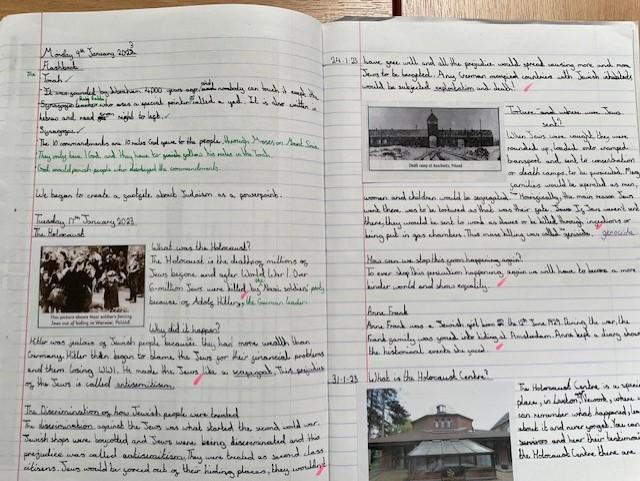 Monday 9th January 2023
Flashback
The
Torah
It was founded by Abraham 4000 years ago, nobody can touch it expt the
Synagogue leader who uses a special pointer called a yad. It is also written in
Hebrew and read from right to left.
Synagogue
The 10 commandments are 10 rules God gave to the people, through Moses on Mount Sinai.
They only have 1 God and they have to follow his rules in the Torah.
God would punish people who disobeyed the commandments.
We began to create a guide about Judaism as a powerpoint.
Tuesday 17th January 2023
The Holocaust
This picture shows Nazi soldiers forcing
Jews out of hiding in Warsaw, Poland
What was the Holocaust?
The Holocaust is the death of millions of
Jews before and after World War 1. Over
6 million Jews were killed by Nazi soldiers party
because of Adolf Hitler, the German leader
Why did it happen?
Hitler was jealous of Jewish people because they had more wealth than
Germany. Hitler then began to blame the Jews for their financial problems
and them losing WW1. He made the Jews like a scapegoat. This prejudice
of the Jews is called antisemitism.
The Discrimination of how Jewish people were treated
The discrimination against the Jews was what started the second world war.
Jewish shops were boycotted and Jews were being discriminated and this
prejudice was called antisemitism. They were treated as second class
citizens. Jews would be forced out of their hiding places, they wouldn't
24.1.23
have free will and all the prejudice would spread causing more and more
Jews to be targeted. Any German occupied countries with Jewish inhabitants
would be subjected exploitation and death!
Death camp at Auschwitz, Poland
Torture and where were Jews
sent?
When Jews were caught, they were
rounded up, loaded onto cramped
transport and sent to concentration
or death camps, to be persecuted. Many
families would be separated as men
women and children would be segregated. Horrifically, the main reason Jews
went there was to be tortured as that was their fate. If Jews weren't sent
there, they would be sent to work as slaves or be killed through injections or
being put in gas chambers. This mass killing was called genocide. genocide
How can we stop this from happening again?
To ever stop this persecution happening again we will have to become a more
kinder world and show equality.
Anne Frank
Anne Frank was a Jewish girl born on the 12th June 1929. During the war, the
Frank family was forced into hiding at Amsterdam. Anne kept a diary about
the historical events she faced.
31.1.23
What is the Holocaust Centre?
The Holocaust Centre is a
place, in Laxton, Newark, where
can remember what happened,
about it and never forget. You can
survivors and hear their testimon
the Holocaust Centre there are